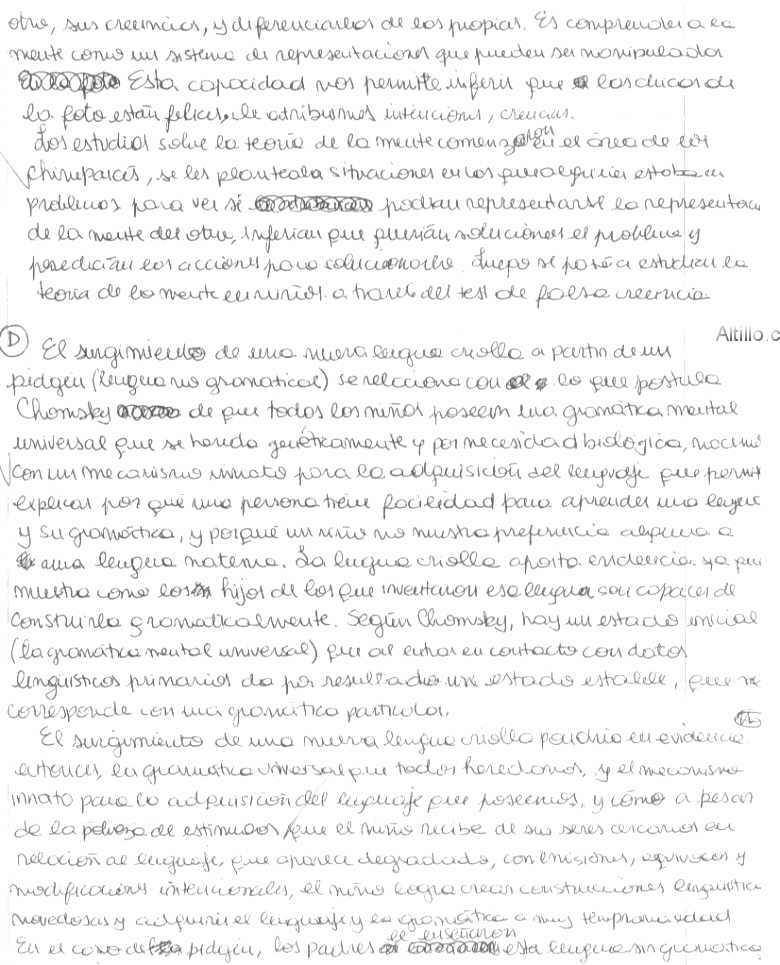 otro, sus creencias, y diferenciarlos de las propias. Es comprender a la
mente como un sistema de representaciones que pueden ser manipuladas
Esta capacidad nos permite inferir que los chicos de
la foto están felices, le atribuimos intenciones, creencias.
Los estudios sobre la teoría de la mente comenzaron en el área de los
chimpancés, se les planteaba situaciones en las que alguien estaba en
problemas para ver si podían representarse la representación
de la mente del otro, inferían que querían solucionar el problema y
predecían las acciones para solucionarlo. Luego se pasó a estudiar la
teoría de la mente en niños a través del test de falsa creencia
Altillo.c
D) El surgimiento de una nueva lengua criolla a partir de un
pidgin (lengua no gramatical) se relaciona con lo que postula
Chomsky de que todos los niños poseen una gramática mental
universal que se hereda genéticamente y por necesidad biológica, nacemos
con un mecanismo innato para la adquisición del lenguaje que permite
explicar por qué una persona tiene facilidad para aprender una lengua
y su gramática, y porqué un niño no muestra preferencia alguna a
una lengua materna. La lengua criolla aporta evidencia ya que
muestra como los hijos de los que inventaron esa lengua son capaces de
construirla gramaticalmente. Según Chomsky, hay un estado inicial
(la gramática mental universal) que al entrar en contacto con datos
lingüísticos primarios da por resultado un estado estable, que se
corresponde con una gramática particular.
El surgimiento de una nueva lengua criolla pondría en evidencia
entonces, la gramática universal que todos heredamos, y el mecanismo
innato para la adquisición del lenguaje que poseemos, y cómo a pesar
de la pobreza de estímulos que el niño recibe de sus seres cercanos en
relación al lenguaje, que aparece degradado, con emisiones, equívocos y
modificaciones intencionales, el niño logra crear construcciones lingüística
novedosas y adquirir el lenguaje y la gramática a muy temprana edad
En el caso del pidgin, los padres le enseñaron esta lengua sin gramática